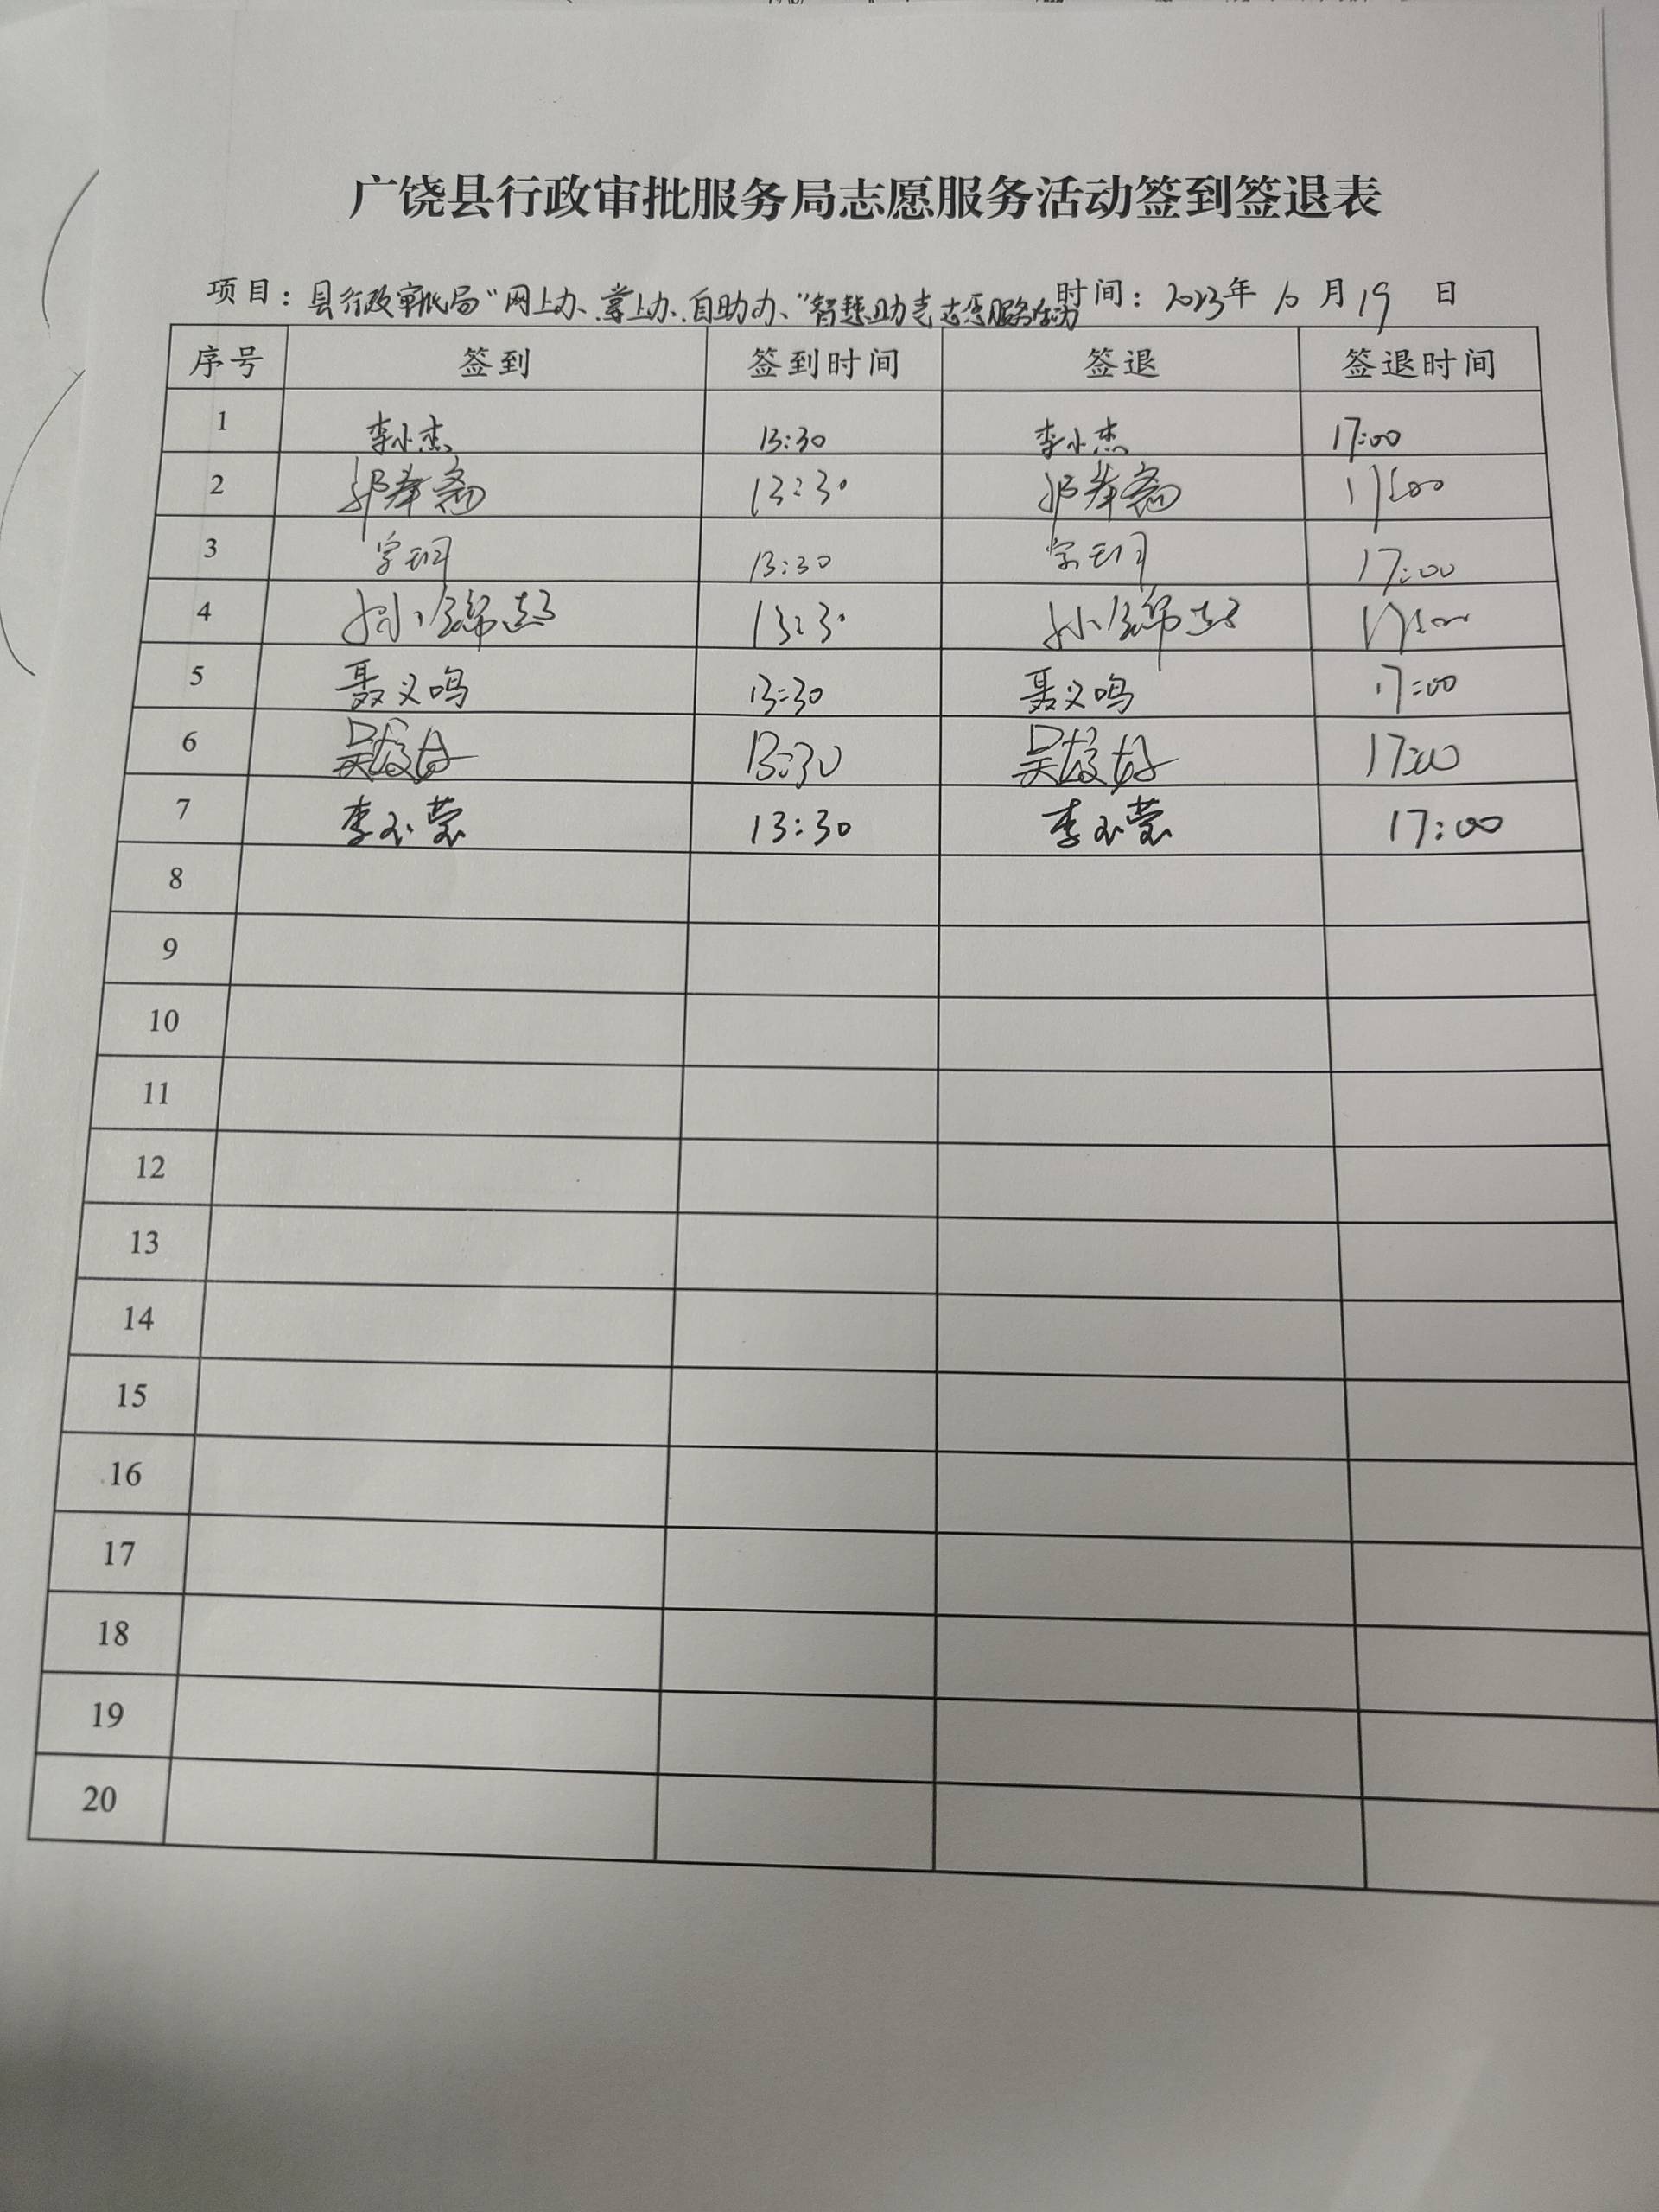 广饶县行政审批服务局志愿服务活动签到签退表
项目：县行政审批局“网上办、掌上办、自助办、”智慧助老志愿服务活动 时间：2023年 10 月 19 日
序号 签到 签到时间 签退 签退时间
1 李小杰 13:30 李小杰 17:00
2 13:30 17:00
3 13:30 17:00
4 13:30 17:00
5 聂义鸣 13:30 聂义鸣 17:00
6 吴 13:30 吴 17:00
7 李玉莹 13:30 李玉莹 17:00
8
9
10
11
12
13
14
15
16
17
18
19
20